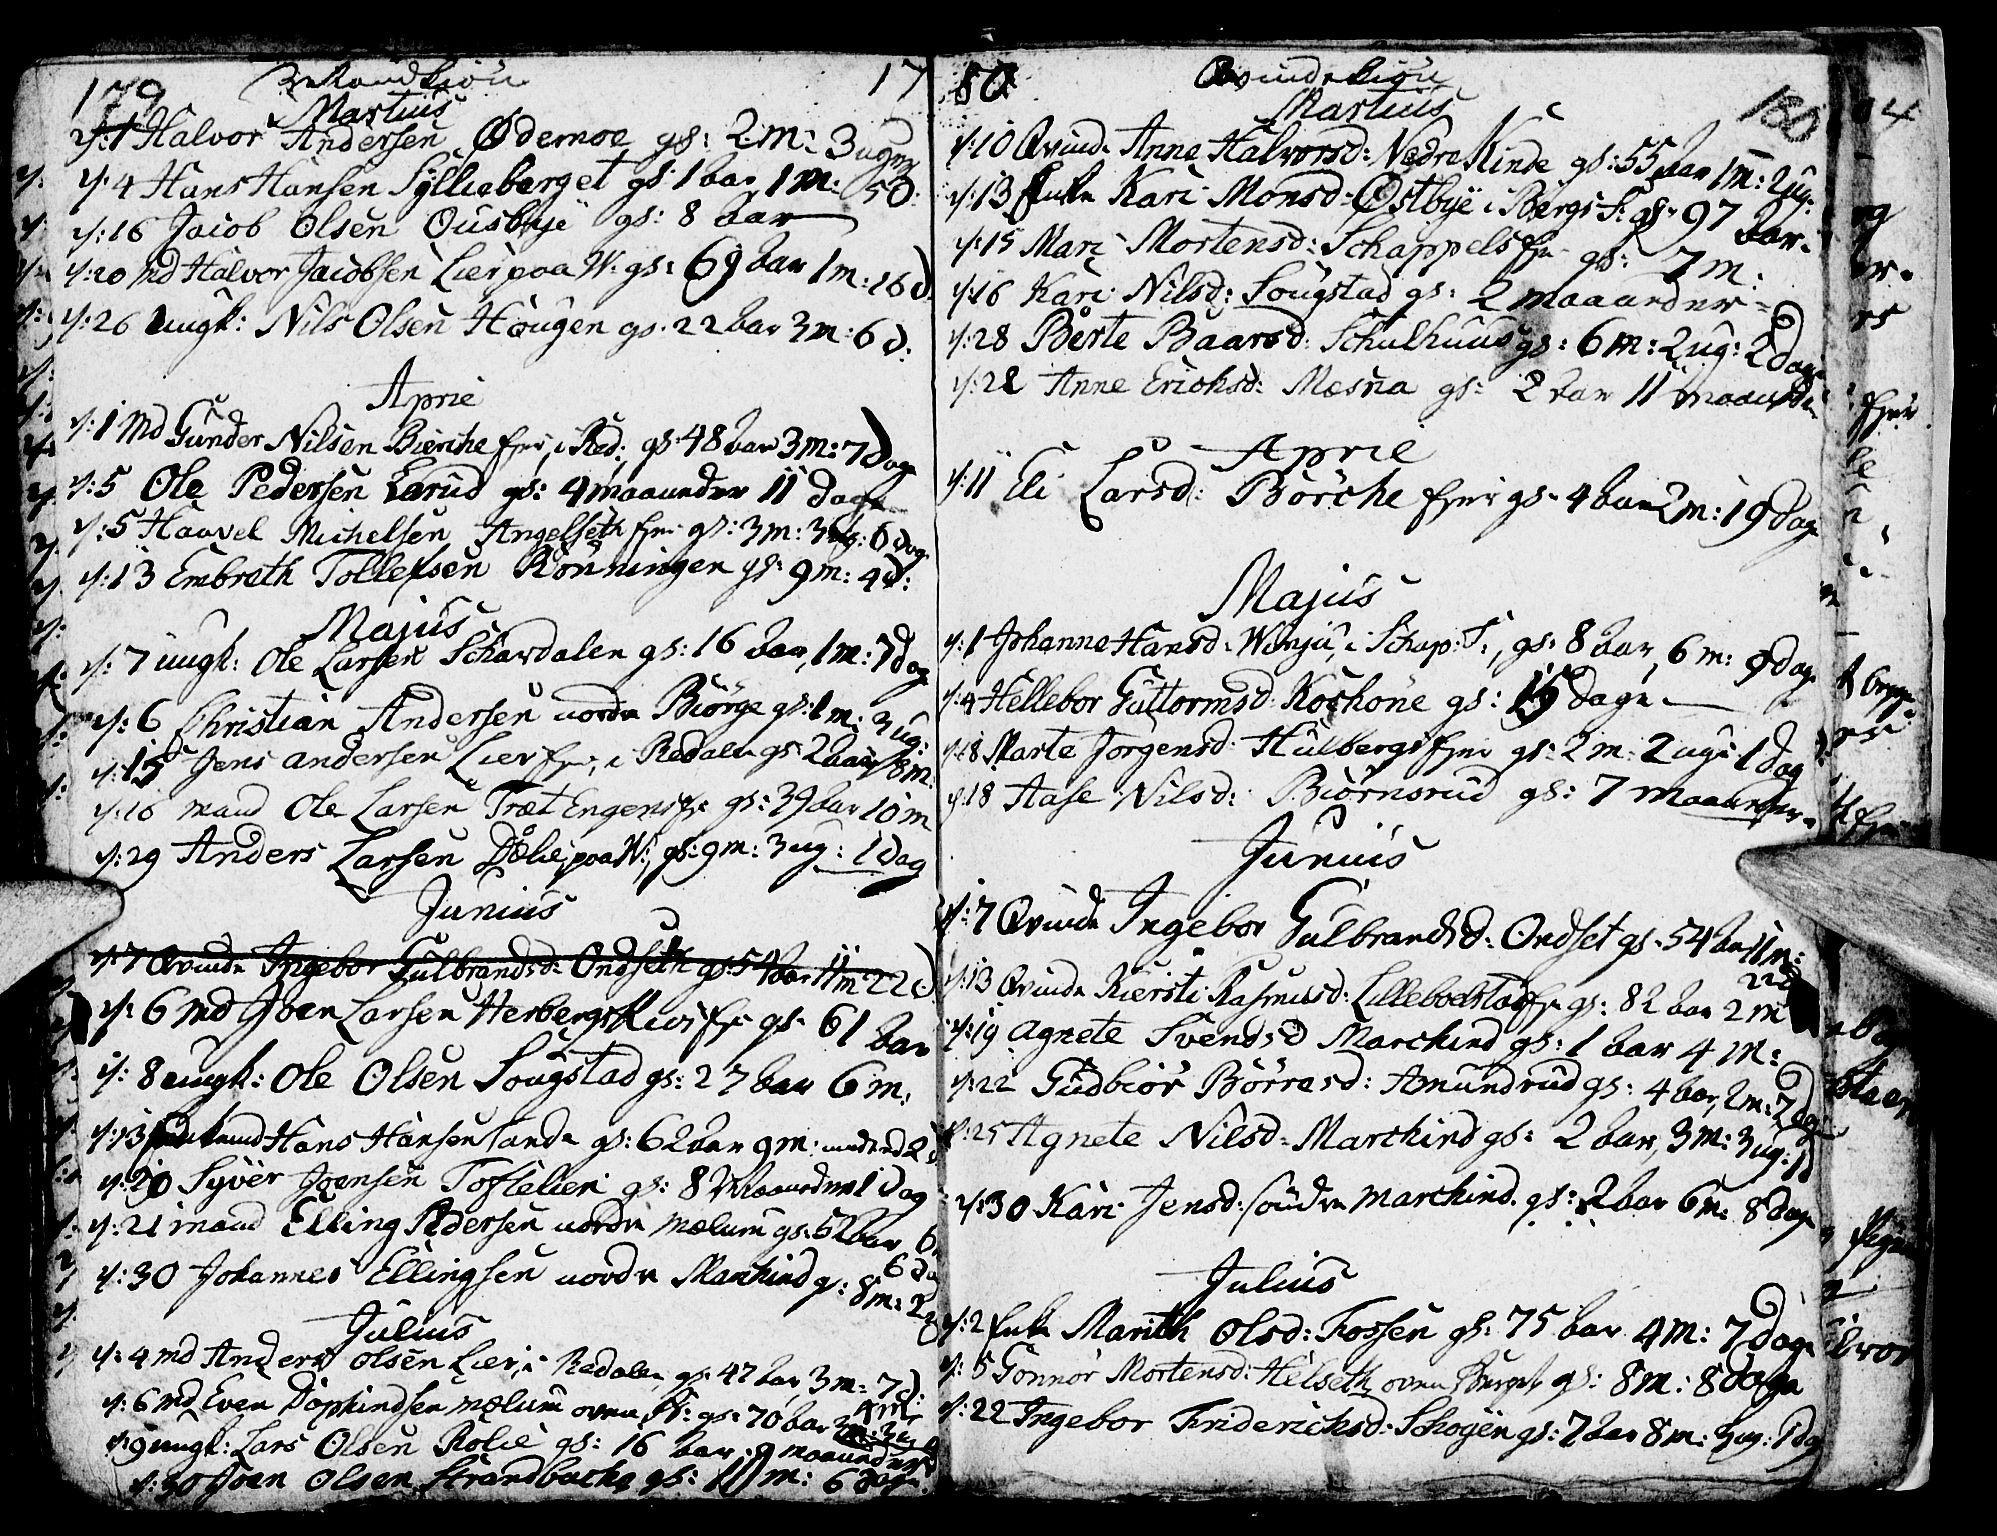 179 Mandkiøn 17
Martius
d: 1 Halvor Andersen Ødemoe gs: 2 m: 3 uger
d: 4 Hans Hansen Syllieberget gs: 1 aar 1 m: 5 d:
d: 16 Jacob Olsen Ousbye gs: 8 aar
d: 20 Md Halvor Jacobsen Lier paa W: gs: 69 aar 1 m: 16 d.
d: 26 ungk: Nils Olsen Haugen gs: 22 aar 3 m: 6 d:
Aprie
d: 1 Md Gunder Nilsen Bierche fyr, i Red: gs: 48 aar 3 m: 7 dage
d: 5 Ole Pedersen Larud gs: 4 maaneder 11 dage
d: 5 Haavel Michelsen Angelseth fyr gs: 3 m: 3 ug: 6 dag
d: 13 Embreth Tollefsen Rönningen gs: 9 m: 4 d:
Majus
d: 7 ungk: Ole Larsen Schardalen gs: 16 aar, 1 m: 7 dag
d: 6 Christian Andersen nordre Biørge gs: 1 m: 3 ug:
d: 15 Jens andersen Lier fyr, i Redalen gs 2 aar 8 m:
d: 16 mand Ole Larsen Træt Engens gs: 39 aar 10 m
d: 29 Anders Larsen Dælie, paa W:, gs: 9 m: 3 ug: 1 dag
Junius
d: 7 Qvinde Ingebor Gulbrandsd: Ondseth gs: 54 aar 11 m 22 d
d: 6 Md Joen Larsen Herberg gs: 61 aar
d: 8 ungk: Ole Olsen Sougstad gs: 27 aar 6 m:
d: 13 Hans Hansen Sande gs: 62 aar 9 m:
d: 20 Syver Joensen Toftelien gs: 8 Maaneder 1 dag
d: 21 mand Elling Pedersen nordre Mælum gs: 52 aar 6 m
6 dag
d: 30 Johannes Ellingsen nordre Marchind gs: 8 m: 2
Julius
d: 4 Md Anders Olsen Lier, i Redalen, gs: 47 aar, 3 m: 7 d:
d: 6 Md Even mælum gs: 70 aar
d: 9 ungk: Lars Olsen Rolie gs: 16 aar 9 maaneder
d: 30 Joen Olsen Strandbache gs: 11 m: 6 dage
80 Qvindekiøn 180
Martius
d: 10 Qvinde Anne Halvorsd: Nedre Kinde gs: 55 aar 1 m: 2 ug:
d: 13 Enke Kari Monsd: Østbye i Bergs S: gs: 97 aar.
d: 15 Mari Mortensd: Schappels gs: 7 m:
d: 16 Kari Nilsd: Sougstad gs: 2 maaneder
d: 28 Berte Baarsd: Schulhuus gs: 6 m: 2 ug: 2 dage
d: 28 Anne Erichsd: Mæsna gs: 2 aar 11 maaneder
Aprie
d: 11 Eli Larsd: Börche fyr gs: 4 aar 2 m: 19 dage
Majus
d: 1 Johanne Hansd: i Schap: T:, gs: 8 aar, 6 m: 9 dag
d: 4 Hellebor Guttormsd: gs: 15 dage
d: 18 Marte Jorgensd: Hulbergs gs: 2 m: 2 ug: 1 dag
d: 18 Aase Nilsd: Biørnsrud gs: 7 maaneder
Junius
d: 7 Qvinde Ingebor Gulbrandsd: Ondset gs: 54 aar 11 m:
22 d
d: 13 Qvinde Kiersti Rasmusd: Lilleboelstad gs: 82 aar 2 m
d: 19 Agnete Svendsd Marchind gs: 1 aar 4 m:
d: 22 Gudbiör Börresd: Amundrud gs: 4 aar, 2 m: 7 dage
d: 25 Agnete Nilsd: Marchind gs: 2 aar, 3 m: 3 ug: 1 d
d: 30 Kari Jensd: söndre marchind gs: 2 aar 6 m: 8 dage
Julius
d: 2 Enke Marith Olsd: Fossen gs: 75 aar 4 m: 7 dage
d: 5 Gonnor Mortensd: Helseth gs: 8 m: 8 dage
d: 22 Ingebor Friderichsd: Schoyen gs: 7 aar 8 m: 3 ug: 1 dg